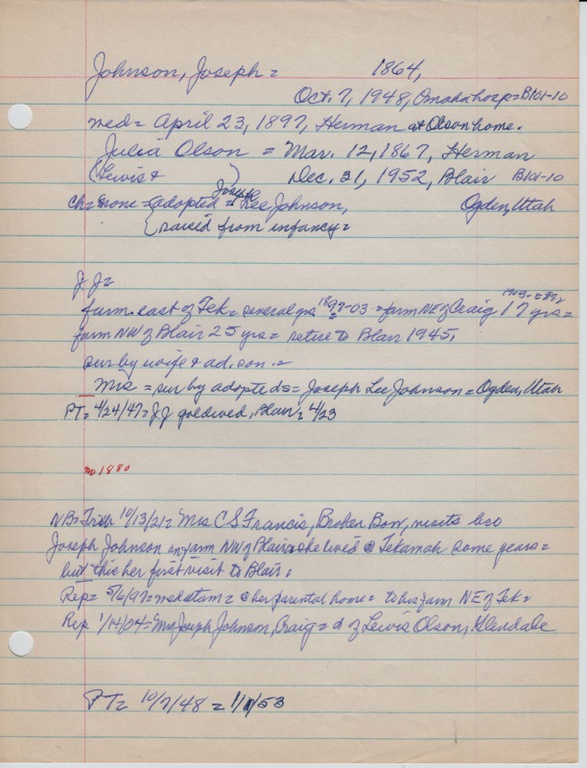 Johnson, Joseph = 1864,
Oct. 7, 1948, Omaha hosp = B101-10
wed = April 23, 1897, Herman at Olson home.
Julia Olson = Mar. 12, 1867, Herman
(Lewis & } Dec. 31, 1952, Blair B101-10
Joseph
ch = none = adopted = Lee Johnson, Ogden, Utah
{ raised from infancy =
J J =
1897-03 1903-
farm east of Tek = several yrs = farm NE of Craig 17 yrs =
farm NW of Blair 25 yrs = retire to Blair 1945,
sur by wife & ad. son. =
Mrs = sur by adopted s = Joseph Lee Johnson = Ogden, Utah
PT = 4/24/47 = J J gold wed, Blair = 4/23
no 1880
NB = Trib 10/13/21 = Mrs C S Francis, Broken Bow, visits bro
Joseph Johnson on farm NW of Blair = she lived @ Tekamah some years =
but this her first visit to Blair.
Rep = 5/6/97 = wed @ her parental home = to his farm NE of Tek =
Rep 1/14/04 = Mrs Joseph Johnson, Craig = d of Lewis Olson, Glendale
PT = 10/7/48 = 1/1/53